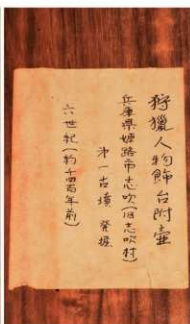 狩猟人物飾台附壷
兵庫県姫路市志吹(旧志吹村)
第一古墳 発掘
六世紀(約千四百年前)